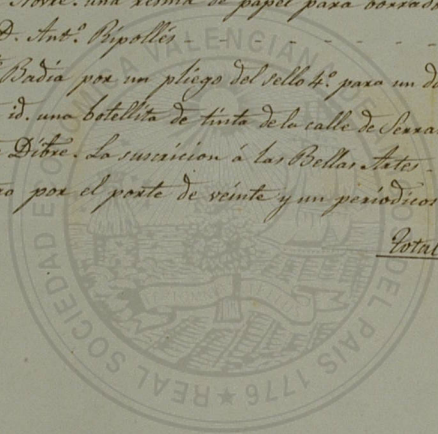 Novre. una resma de papel para borrad
D. Antº. Ripollés
Badía por un pliego del sello 4º. para un d
id. una botellita de tinta de la calle de Serra
Dibre. La suscricion á las Bellas Artes
por el porte de veinte y un periodicos
Total
REAL SOCIEDAD ECONOMICA VALENCIANA DE AMIGOS DEL PAIS 1776